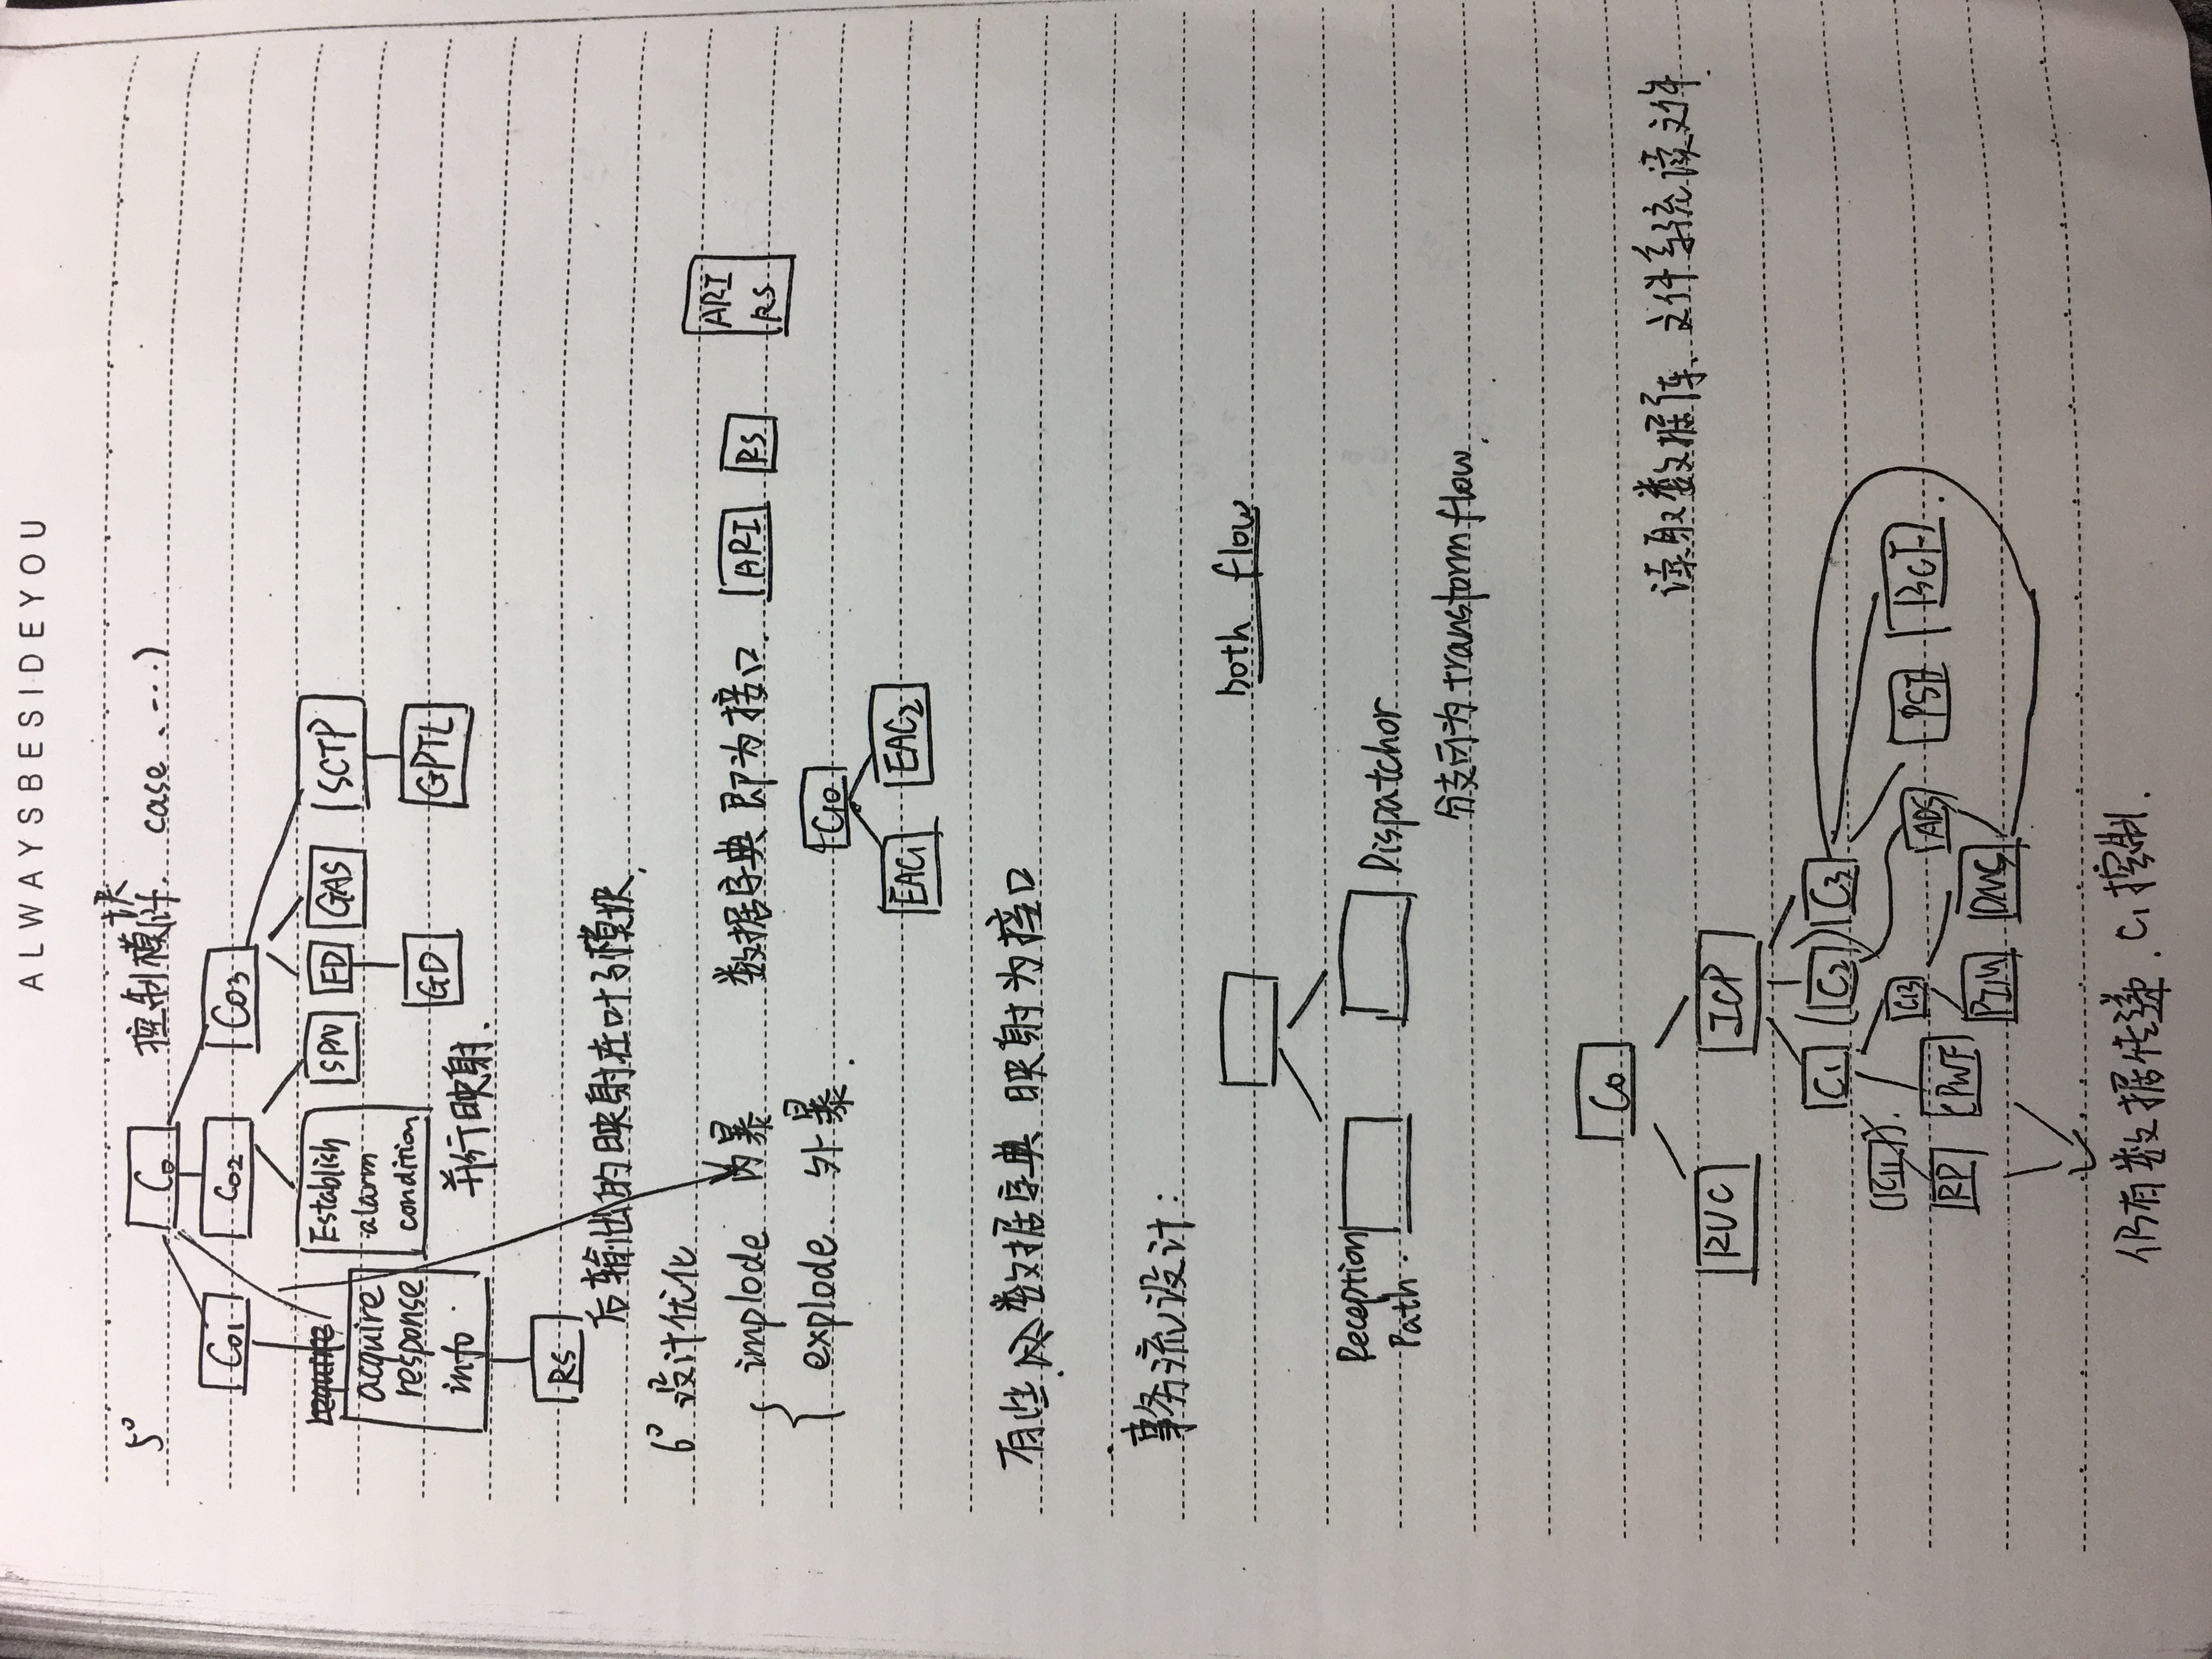 ALWAYSBESIDEYOU
5° C0 控制模块 case、…)
C01 C02 C03
acquire response info
Establish alarm condition
SPN FD GAS SCTP
GD GPTL
并行映射.
RS
后输出的映射在叶子模块.
6° 设计优化
implode 内暴 数据字典 即为接口. ARI RS ARI RS
explode. 外暴.
C10
EAC1 EAC2
有些 数据字典 映射为接口
事务流设计:
both flow
Reception Path. Dispatchor
分支可为transform flow.
C0
读取数据库、文件系统读文件.
RUC ICP
C1 (C2) C3
C13
RP CPWF ADS
PIM DMS
仍有数据传递. C1控制.